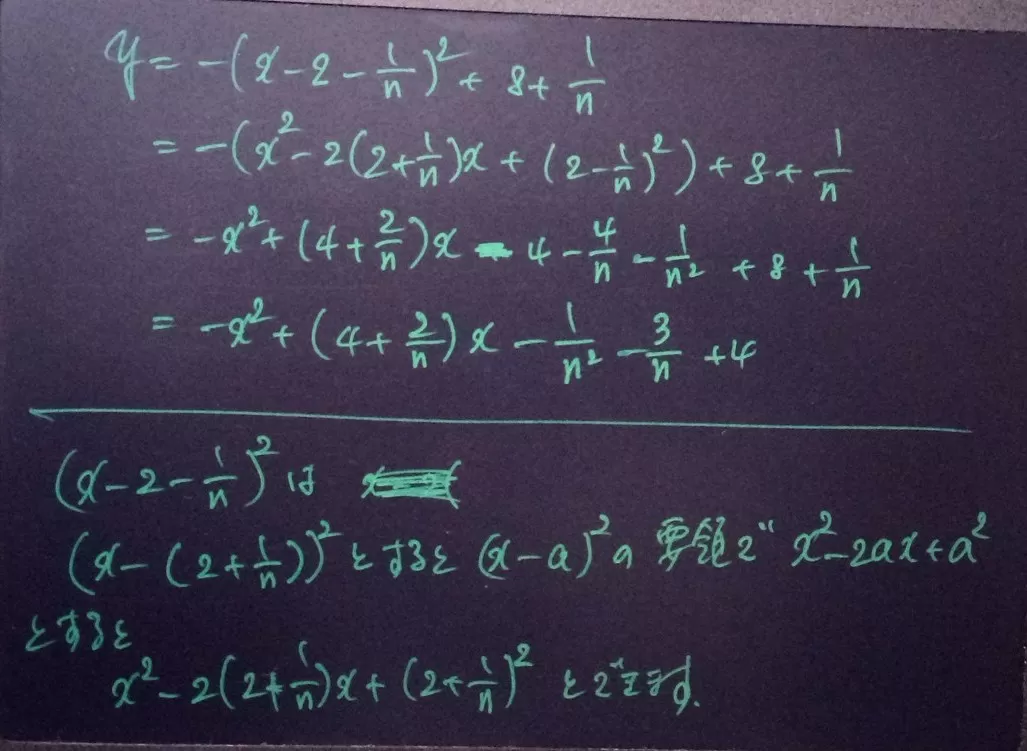 y = -(x-2-1/n)² + 8 + 1/n
= -(x² - 2(2+1/n)x + (2-1/n)²) + 8 + 1/n
= -x² + (4+2/n)x - 4 - 4/n - 1/n² + 8 + 1/n
= -x² + (4+2/n)x - 1/n² - 3/n + 4
(x-2-1/n)² は
(x-(2+1/n))² とすると (x-a)² の 要領で x²-2ax+a²
とすると
x² - 2(2+1/n)x + (2+1/n)² とできます.